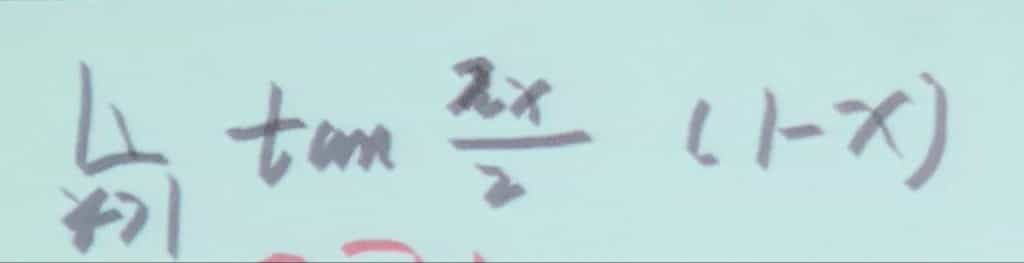 Lt x→1 tan πx/2 (1-x)